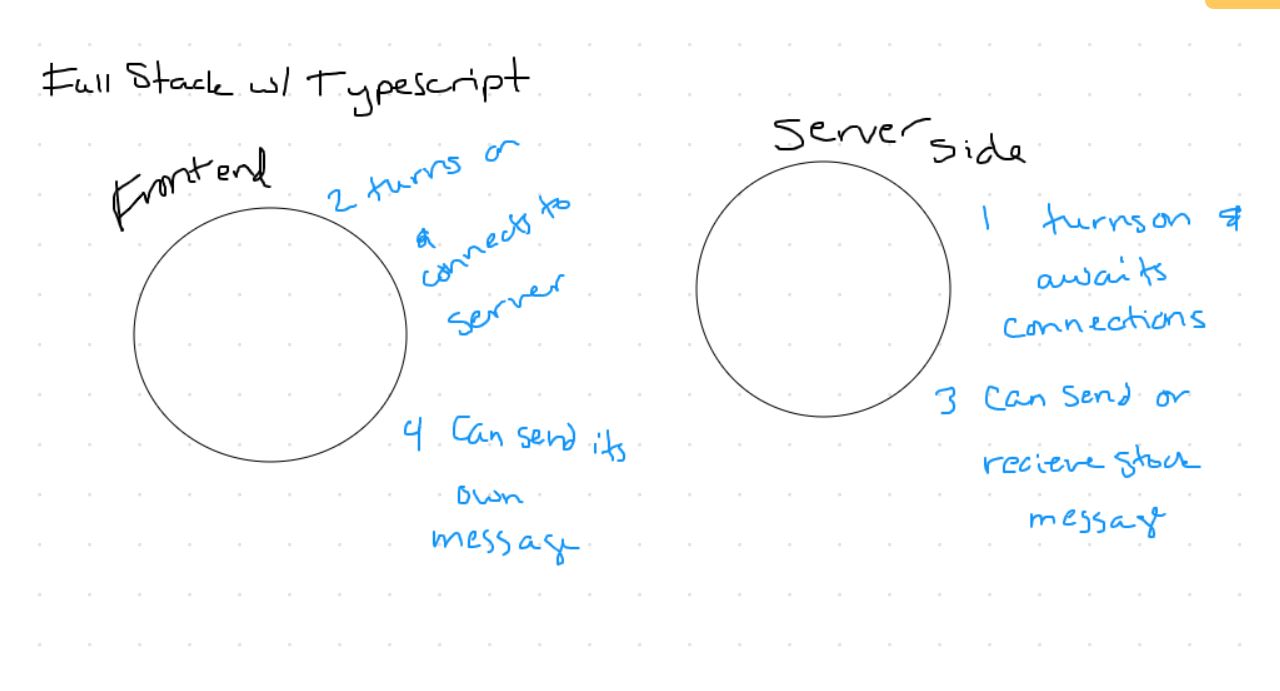 Full Stack w/ Typescript
Frontend
2 turns on
& connects to
server
4 Can send its
own
message
Server side
1 turns on &
awaits
connections
3 Can send or
recieve stock
message